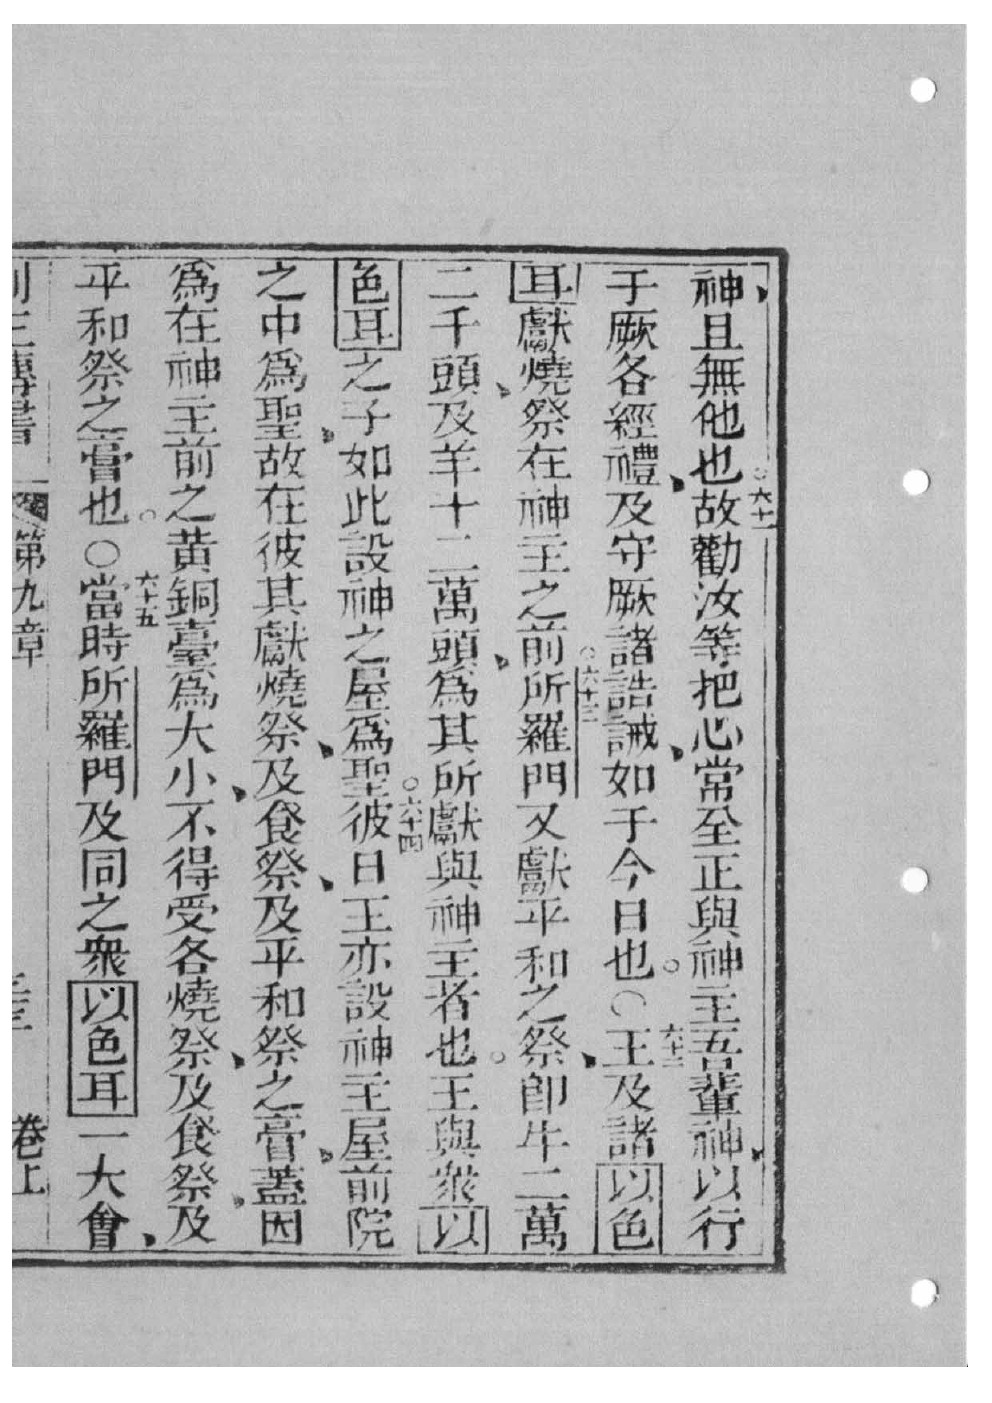 神且無他也。六十一故勸汝等把心常至正與神主吾輩神以行
于厥各經禮及守厥諸誥誡如于今日也。○六十二王及諸以色
耳獻燒祭在神主之前。六十三所羅門又獻平和之祭卽牛二萬
二千頭及羊十二萬頭爲其所獻與神主者也。王與衆以
色耳之子如此設神之屋爲聖。六十四彼日王亦設神主屋前院
之中爲聖故在彼其獻燒祭及食祭及平和祭之膏蓋因
爲在神主前之黃銅臺爲大小不得受各燒祭及食祭及
平和祭之膏也。○六十五當時所羅門及同之衆以色耳一大會
列王傳書 第九章 卷上